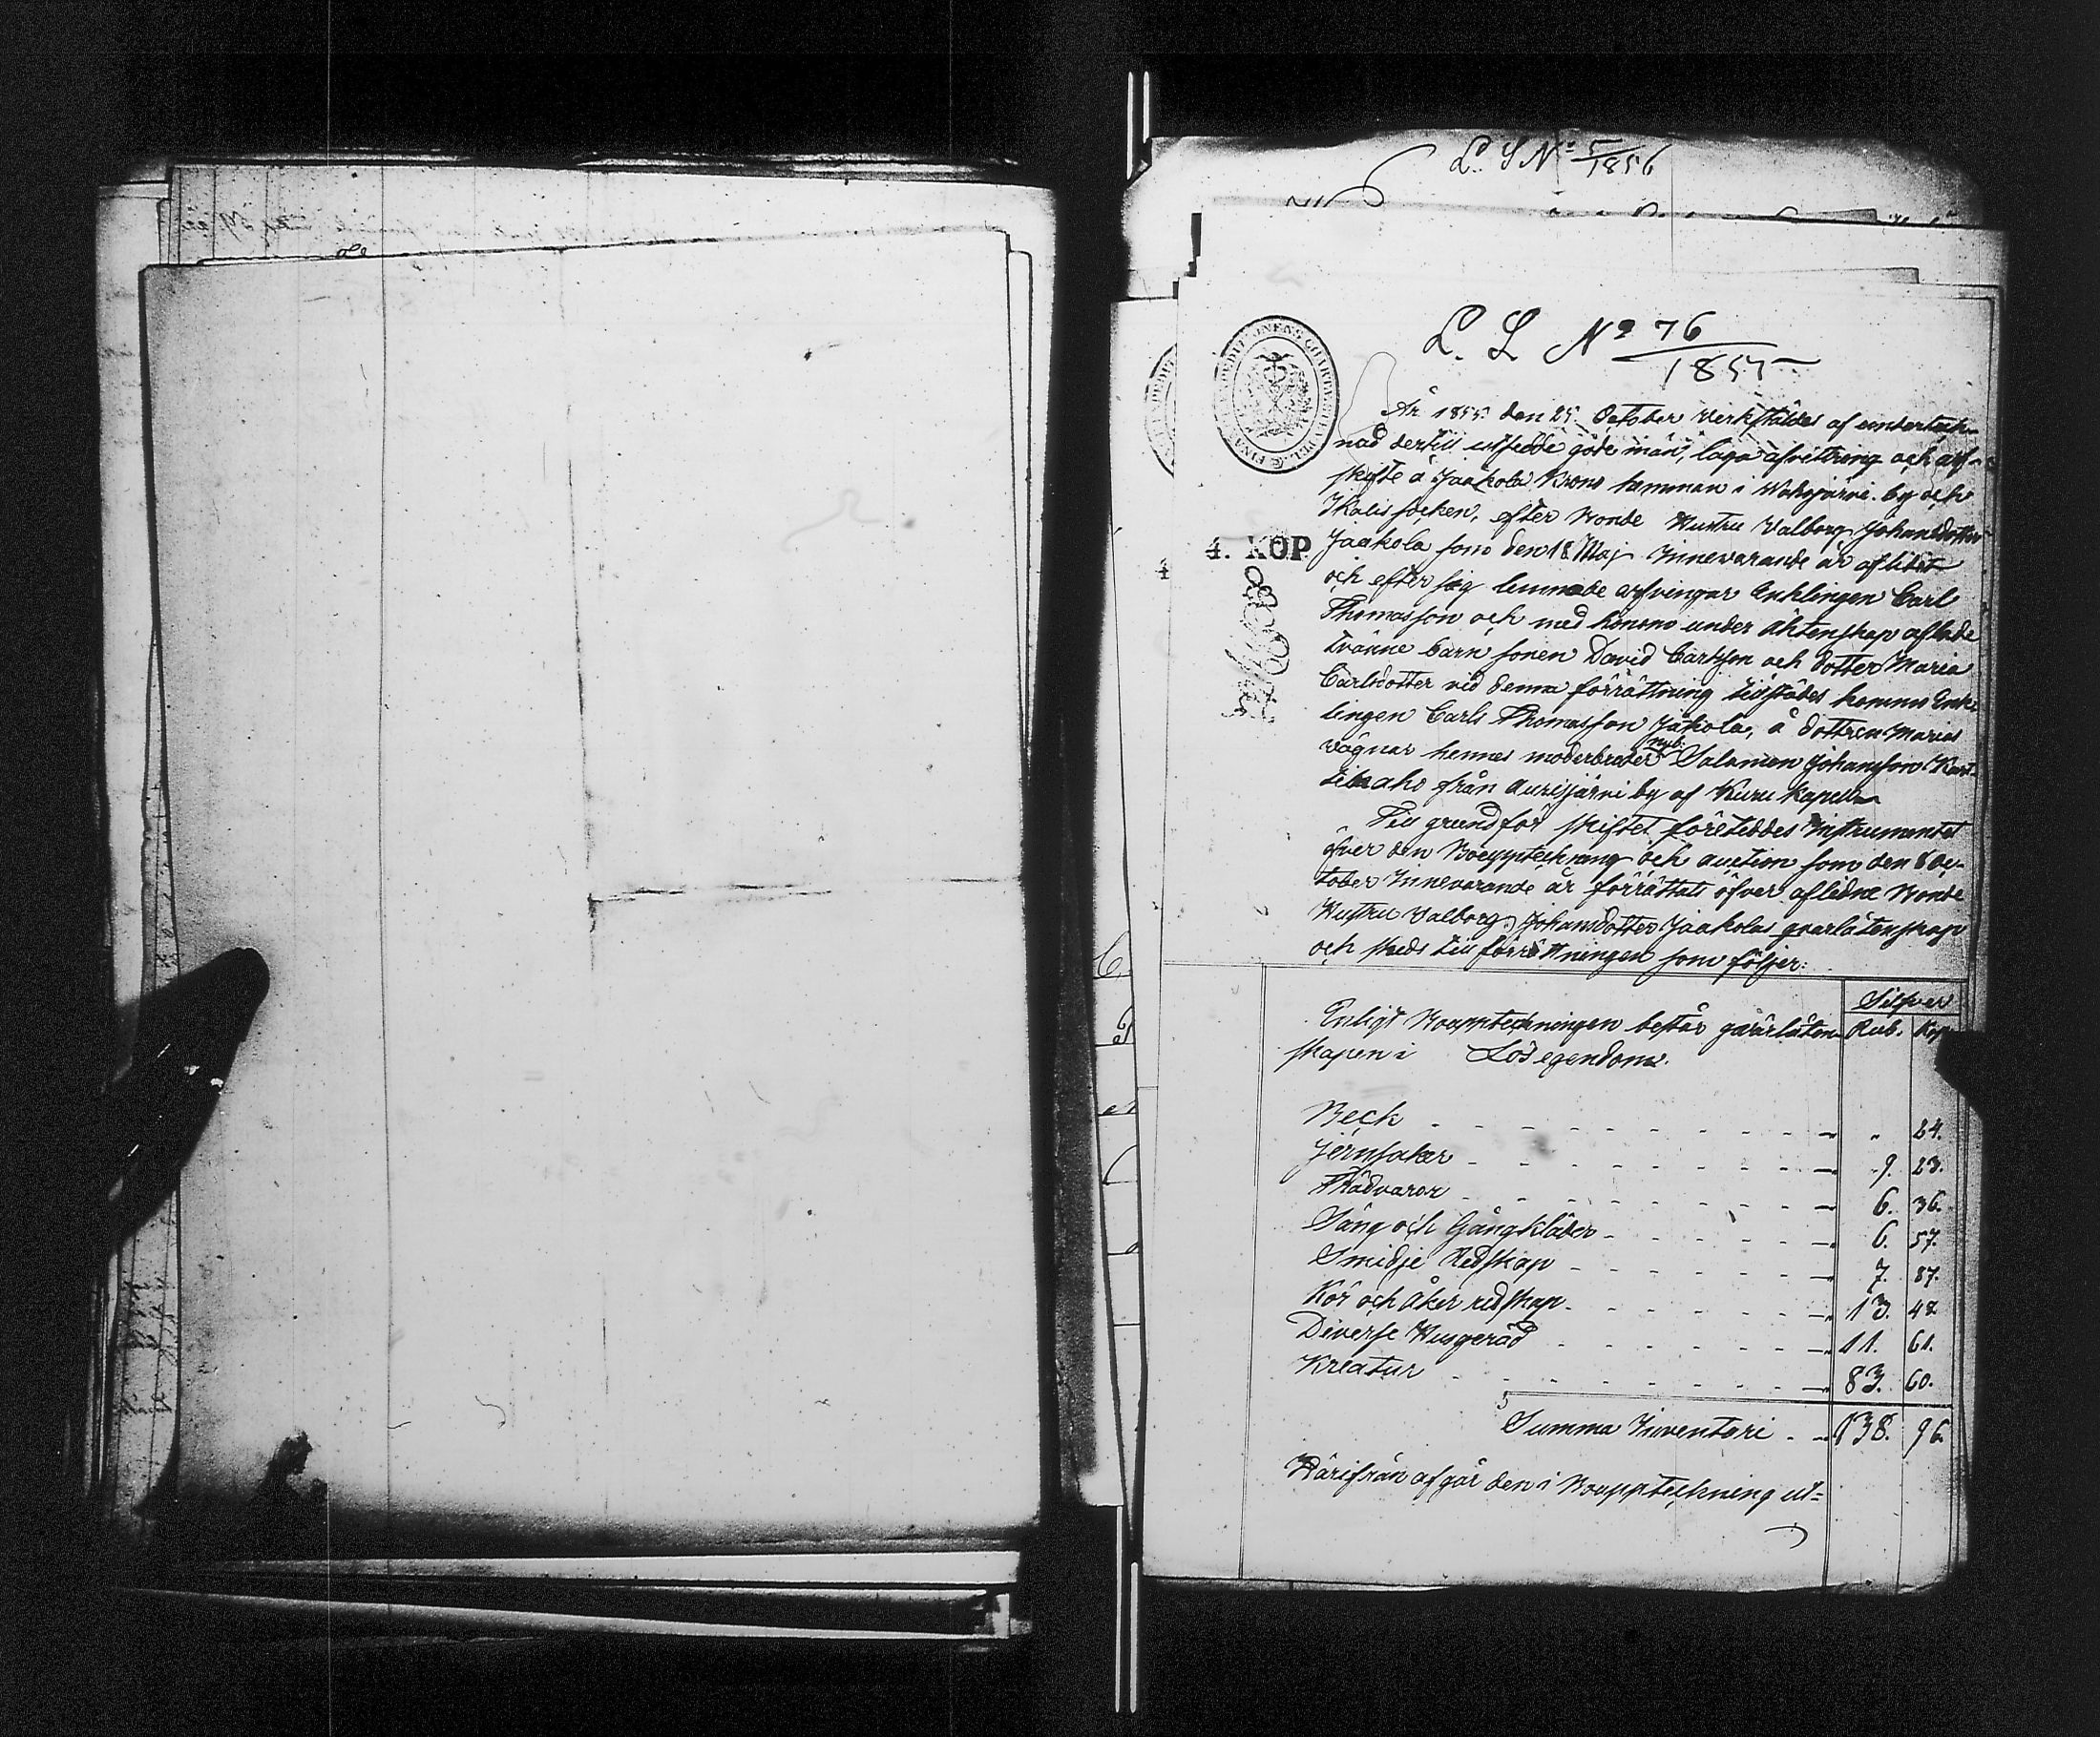 L. S N:o 5/1856
L. S N:o 76/1855
4. KOP.
År 1855 den 25 October verkstäldes af underteck-
nad dertill utsedde gode män, laga afvittring och arf-
skifte å Jaakola Krono hemman i Wahojärvi by och
Ikalis socken, efter Bonde Hustru Valborg Johansdotter
Jaakola som den 18 Maj Innevarande år aflidit
och efter sig lemnade arfvingar Enklingen Carl
Thomasson och med honom under äktenskap aflade
tvänne barn sonen David Carlsson och dotter Maria
Carlsdotter vid denna förrättning tillstädes kommo Enk-
lingen Carl Thomasson Jakola, å dottren Marias
vägnar hennes moderbroder nyb: Salomon Johansson
aho från Aurisjärvi by af Kuru Kapell
Till grund för skiftet företeddes Instrumentet
öfver den Bouppteckning och auction som den 8 Oc-
tober Innevarande år förrättats öfver aflidne Bonde
Hustru Valborg Johansdotter Jaakolas qvarlåtenskap
och skeds till förrättningen som följer:
Silfver
Enligt Bouppteckningen består qvarlåten- Rub. Kop
skapen i Lös egendom.
Beck - - - " 24.
Jernsaker - - - 9. 23.
Trädvaror - - - 6. 36.
Säng och Gångkläder - - - 6. 57.
Smidje Redskap - - - 7. 87.
Kör och Åker redskap - - - 13. 48
Diverse Husgeråd - - - 11. 61.
Kreatur - - - 83. 60.
Summa Inventari - - 138. 96
Härifrån afgår den i Bouppteckning ut=